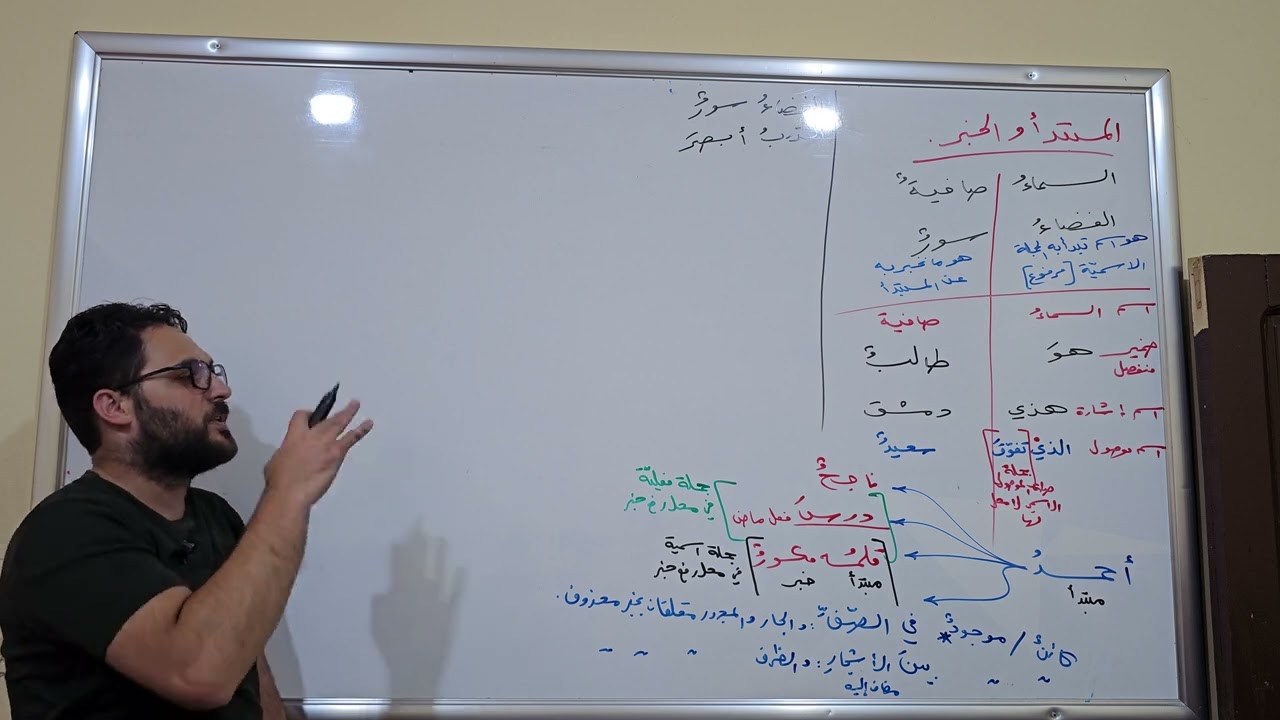 المبتدأ و الخبر.
السماءُ صافيةٌ
الفضاءُ سورٌ
هو اسم تبدأ به الجملة الاسميّة [مرفوع]
هو ما نخبر به عن المبتدأ
اسم السماءُ صافية
ضمير منفصل هوَ طالبٌ
اسم إشارة هذي دمشق
اسم موصول الذيْ [تفوّقَ] سعيدٌ
جملة صلة الموصول الاسمي لا محل لها
أحمدُ
مبتدأ
ناجحٌ
درسَ فعل ماض
جملة فعليّة في محل رفع خبر
[قلمُه مكسورٌ]
مبتدأ خبر
جملة اسمية في محل رفع خبر
كائنٌ / موجودٌ * في الصّفِّ: والجار والمجرور متعلقان بخبر محذوف.
" " بينَ الأشجارِ: والظرف " " "
مضاف إليه
سورٌ
أبصرَ